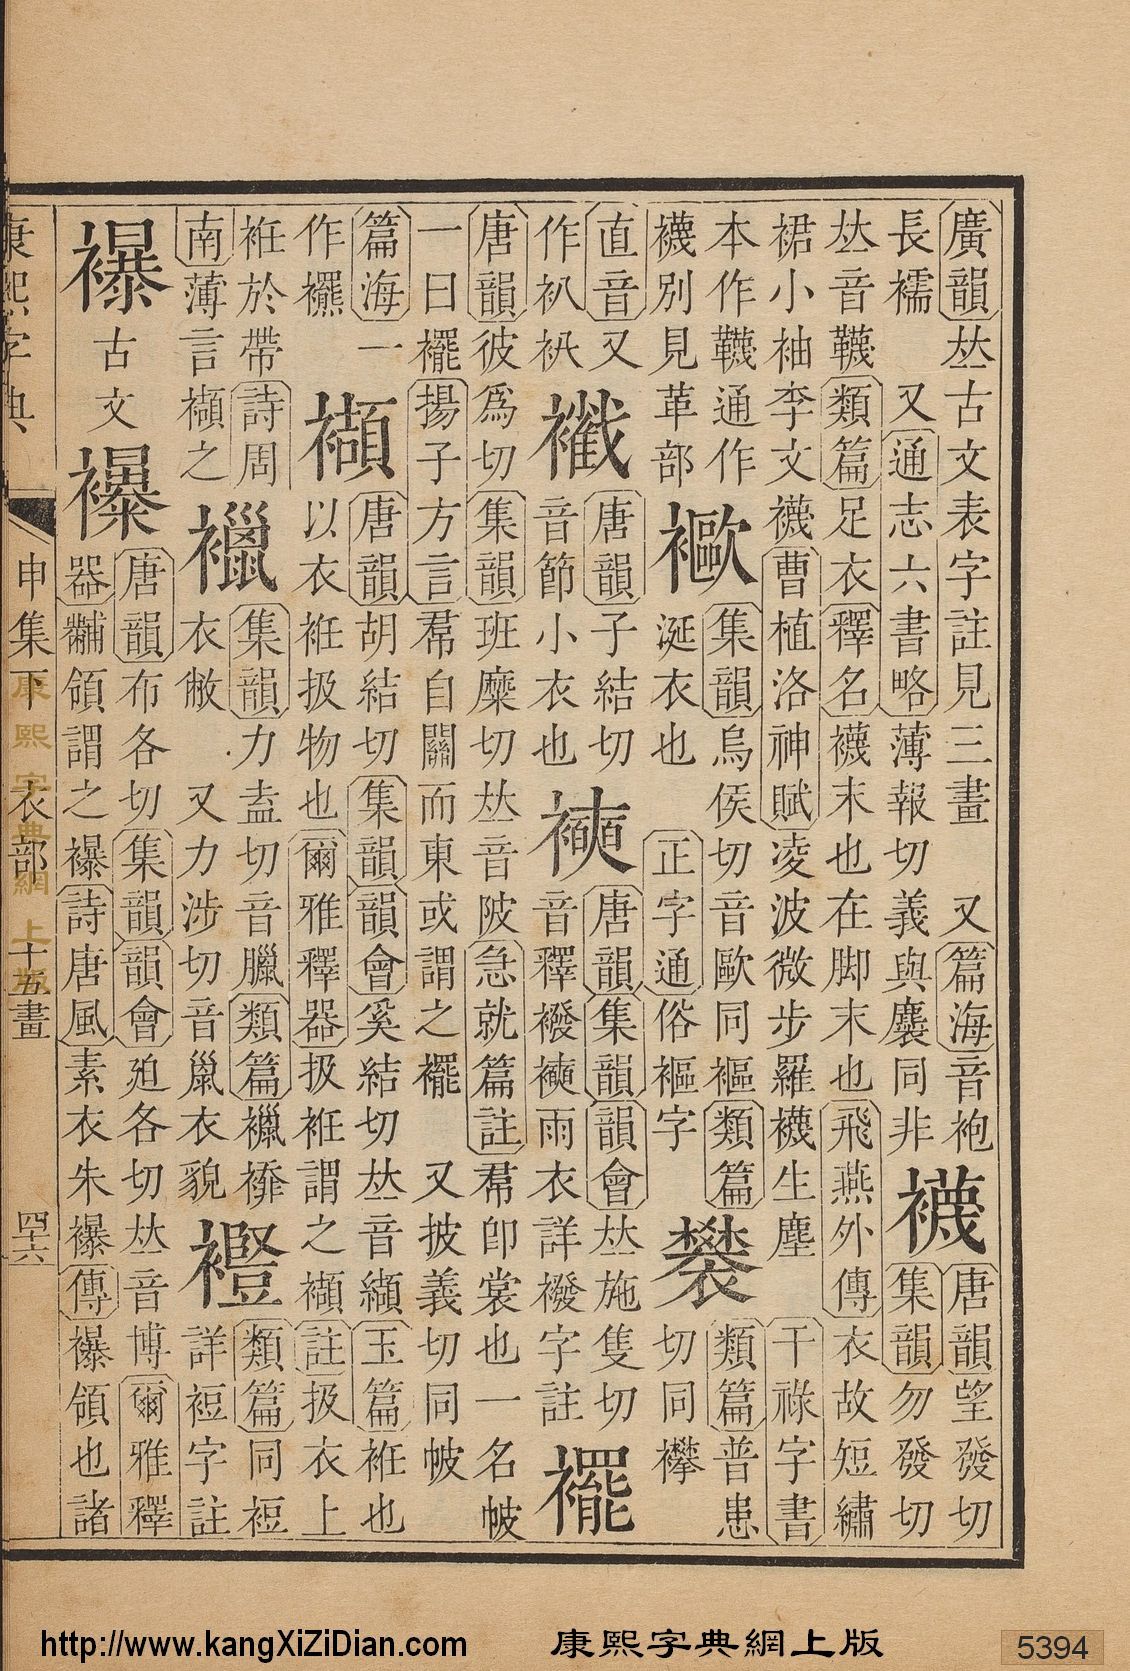 廣韻𠀤古文表字註見三畫 又篇海音袍
長襦 又通志六書略薄報切義與襃同非
襪
唐韻望發切
集韻勿發切
𠀤音韤類篇足衣釋名襪末也在脚末也飛燕外傳衣故短繡
裙小袖李文襪曹植洛神賦凌波微步羅襪生塵 干祿字書
本作韤通作
襪別見革部
集韻烏侯切音歐同褔類篇
涎衣也 正字通俗褔字
類篇普患
切同襻
直音又
作
唐韻子結切
音節小衣也
襫
唐韻集韻韻會𠀤施隻切
音釋襏襫雨衣詳襏字註
襬
唐韻彼爲切集韻班糜切𠀤音陂急就篇註帬卽裳也一名帔
一曰襬揚子方言帬自關而東或謂之襬 又披義切同帔
篇海一
作
襭
唐韻胡結切集韻韻會奚結切𠀤音纈玉篇袵也
以衣袵扱物也爾雅釋器扱袵謂之襭註扱衣上
袵於帶詩周
南薄言襭之
集韻力盍切音臘類篇
衣敝 又力涉切音巤衣貌
類篇同裋
詳裋字註
襮
古文
唐韻布各切集韻韻會廹各切𠀤音博爾雅釋
器黼領謂之襮詩唐風素衣朱襮傳襮領也諸
康熙字典 申集下 衣部 十五畫 四十六
康熙字典網上版
http://www.kangXiZiDian.com 康熙字典網上版 5394